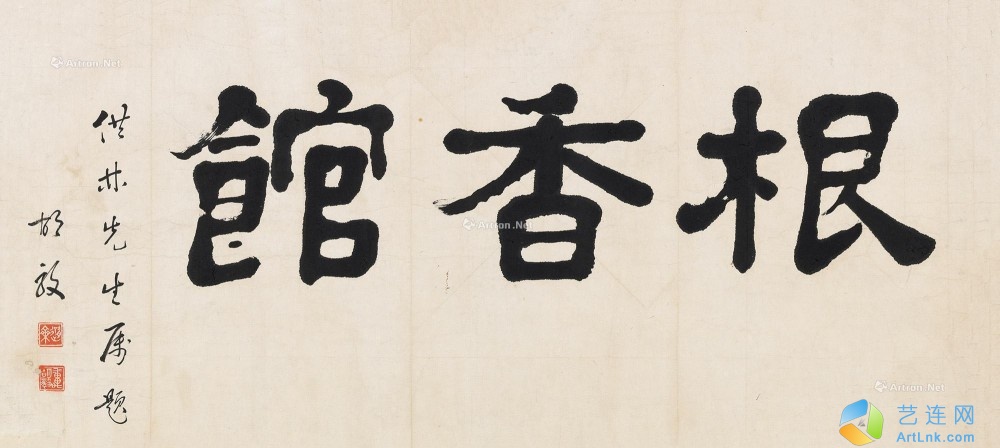 根香館
供林先生属題
胡敬
Artron.Net
Artron.Net
Artron.Net
艺连网
ArtLnk.com